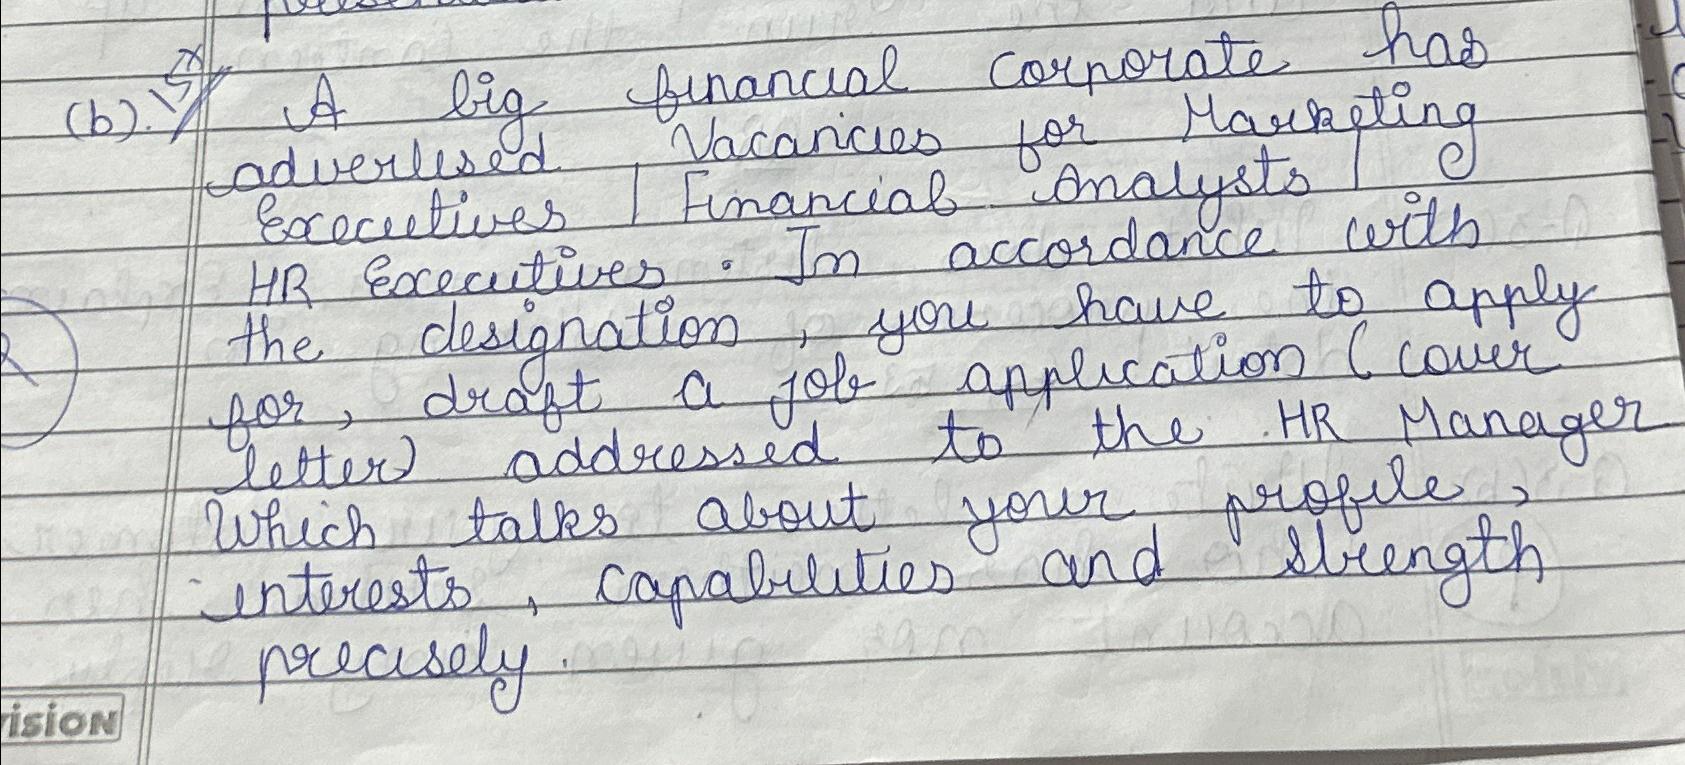 (b). A big financial corporate has
advertised Vacancies for Marketing
Executives / Financial Analysts /
HR Executives. In accordance with
the designation, you have to apply
for, draft a job application (cover
letter) addressed to the HR Manager
Which talks about your profile,
interests, capabilities and strength
precisely.
ision